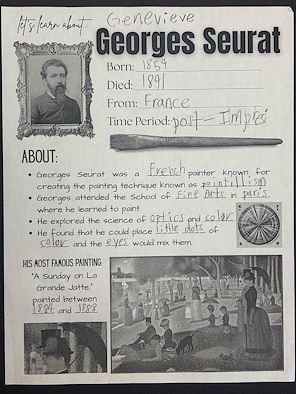 let's learn about
Genevieve
Georges Seurat
Born: 1859
Died: 1891
From: France
Time Period: post-Impresi
ABOUT:
• Georges Seurat was a French painter known for
creating the painting technique known as pointillism
• Georges attended the School of Fine Arts in paris
where he learned to paint.
• He explored the science of optics and color
• He found that he could place little dots of
color and the eyes would mix them.
HIS MOST FAMOUS PAINTING:
"A Sunday on La
Grande Jatte,"
painted between
1884 and 1888